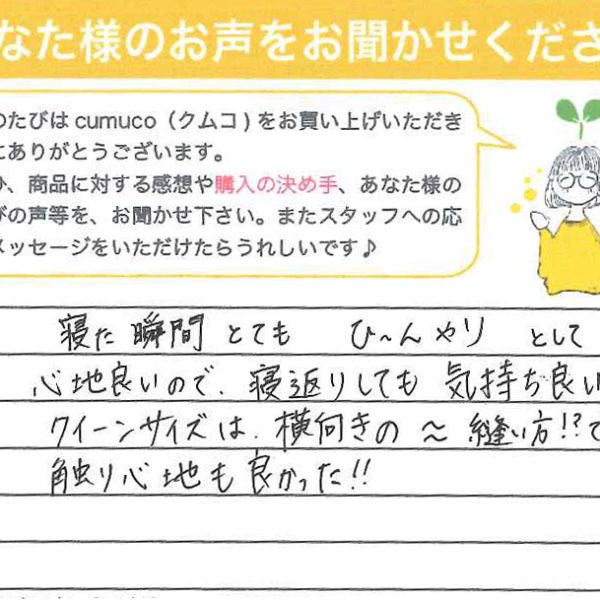 なた様のお声をお聞かせくださ
のたびはcumuco（クムコ）をお買い上げいただき
にありがとうございます。
、商品に対する感想や購入の決め手、あなた様の
びの声等を、お聞かせ下さい。またスタッフへの応
メッセージをいただけたらうれしいです♪
寝た瞬間 とても ひ～んやり として
心地良いので、寝返りしても 気持ち良い
クイーンサイズは、横向きの ～ 縫い方!?で
触り心地も良かった!!